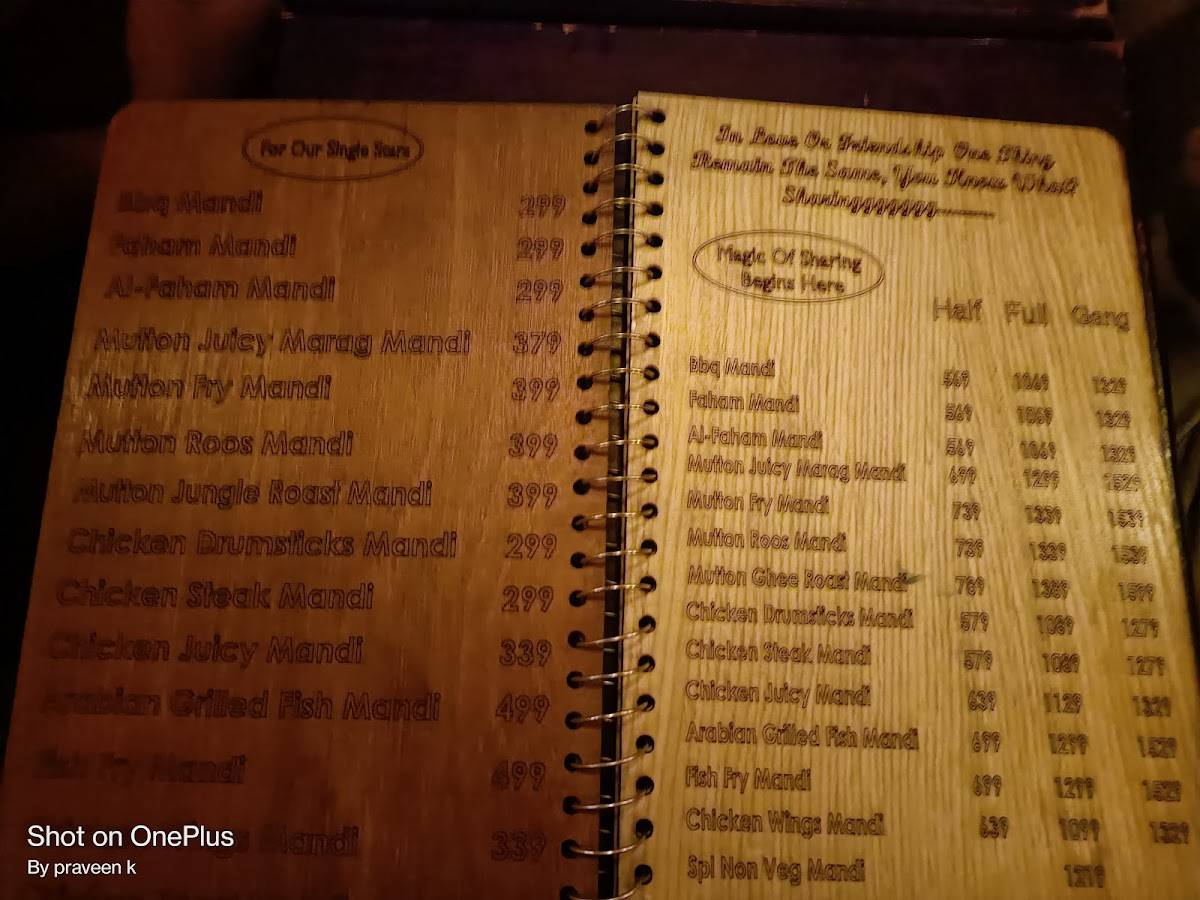 For Our Single Stars
Bbq Mandi 299
Faham Mandi 299
Al-Faham Mandi 299
Mutton Juicy Marag Mandi 379
Mutton Fry Mandi 399
Mutton Roos Mandi 399
Mutton Jungle Roast Mandi 399
Chicken Drumsticks Mandi 299
Chicken Steak Mandi 299
Chicken Juicy Mandi 339
Arabian Grilled Fish Mandi 499
Fish Fry Mandi 499
Mandi 339
In Love Or Friendship One Thing
Remain The Same, You Know What?
Magic Of Sharing
Begins Here
Half Full Gang
Bbq Mandi 569 1069 1329
Faham Mandi 569 1069 1329
Al-Faham Mandi 569 1069 1329
Mutton Juicy Marag Mandi 699 1299 1529
Mutton Fry Mandi 739 1339 1539
Mutton Roos Mandi 739 1339 1539
Mutton Ghee Roast Mandi 789 1389 1599
Chicken Drumsticks Mandi 579 1089 1279
Chicken Steak Mandi 579 1089 1279
Chicken Juicy Mandi 639 1129 1329
Arabian Grilled Fish Mandi 699 1299 1529
Fish Fry Mandi 699 1299 1529
Chicken Wings Mandi 639 1099 1329
Spl Non Veg Mandi 1219
Shot on OnePlus
By praveen k